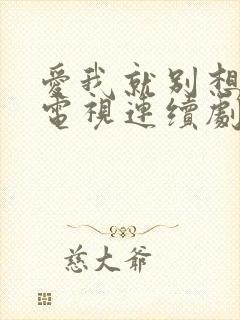 愛我就別想
電視連續劇
慈大爺